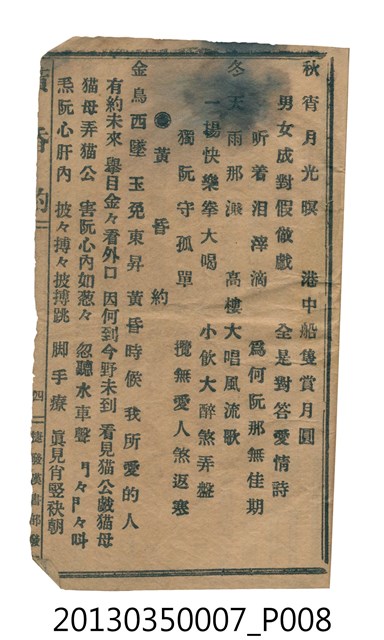 秋宵月光暝　港中船隻賞月圓
男女成對假做戲　全是對答愛情詩
听着泪滓滴　為何阮那無佳期
冬天雨那濺　高樓大唱風流歌
一場快樂拳大喝　小飲大醉煞弄盤
獨阮守孤單　攬無愛人煞返寒
黃昏約
金鳥西墜　玉兎東昇　黃昏時候　我所愛的人
有約未來　舉目金々看外口　因何到今野未到　看見猫公戲猫母
猫母弄猫公　害阮心內如葱々　忽聽水車聲　叫
焄阮心肝內　披々搏々披搏跳　脚手療　眞見肖竪秧朝
黃昏約
四
捷發漢書部發
20130350007_P008